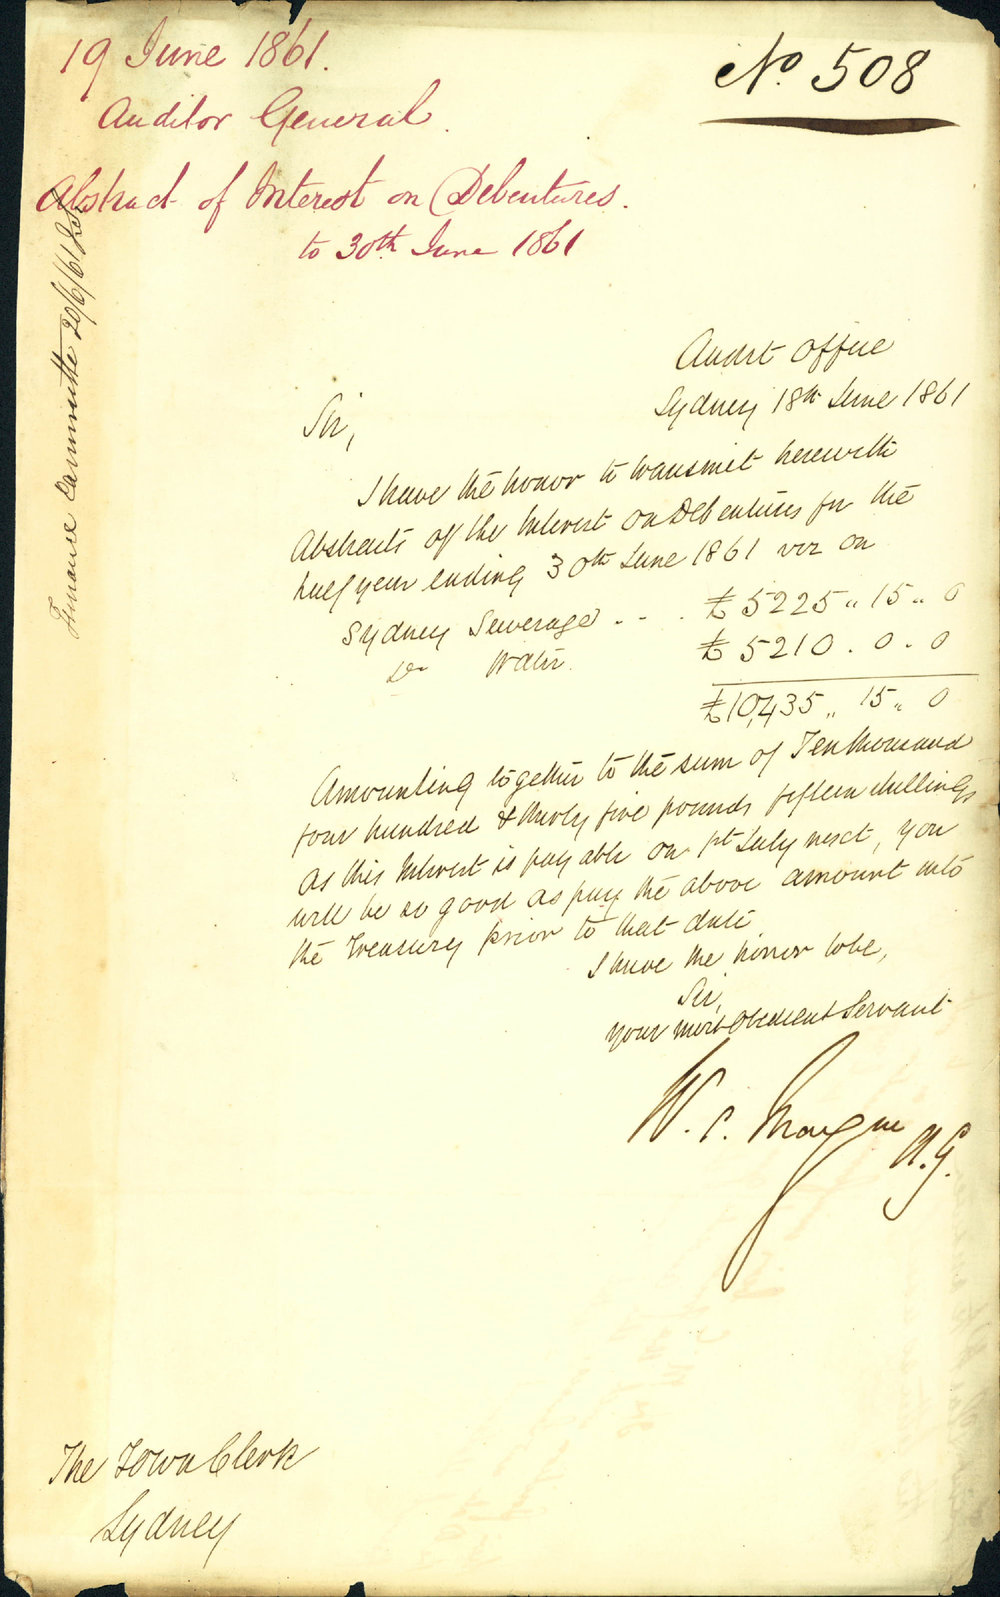 19 June 1861.
No. 508
Auditor General.
Abstract of Interest on Debentures.
to 30th June 1861
Finance Committee 20/6/61
Audit Office
Sydney 18th June 1861
Sir,
I have the honor to transmit herewith
Abstracts of the Interest on Debentures for the
half year ending 30th June 1861 viz on
Sydney Sewerage . . . £5225 " 15 " 0
Do Water £5210 . 0 . 0
£10,435 " 15 " 0
Amounting together to the sum of Ten thousand
four hundred & thirty five pounds fifteen shillings
As this Interest is payable on 1st July next, you
will be so good as pay the above amount into
the Treasury prior to that date
I have the honor to be,
Sir,
Your most obedient Servant
W. C. A.G.
The Town Clerk
Sydney